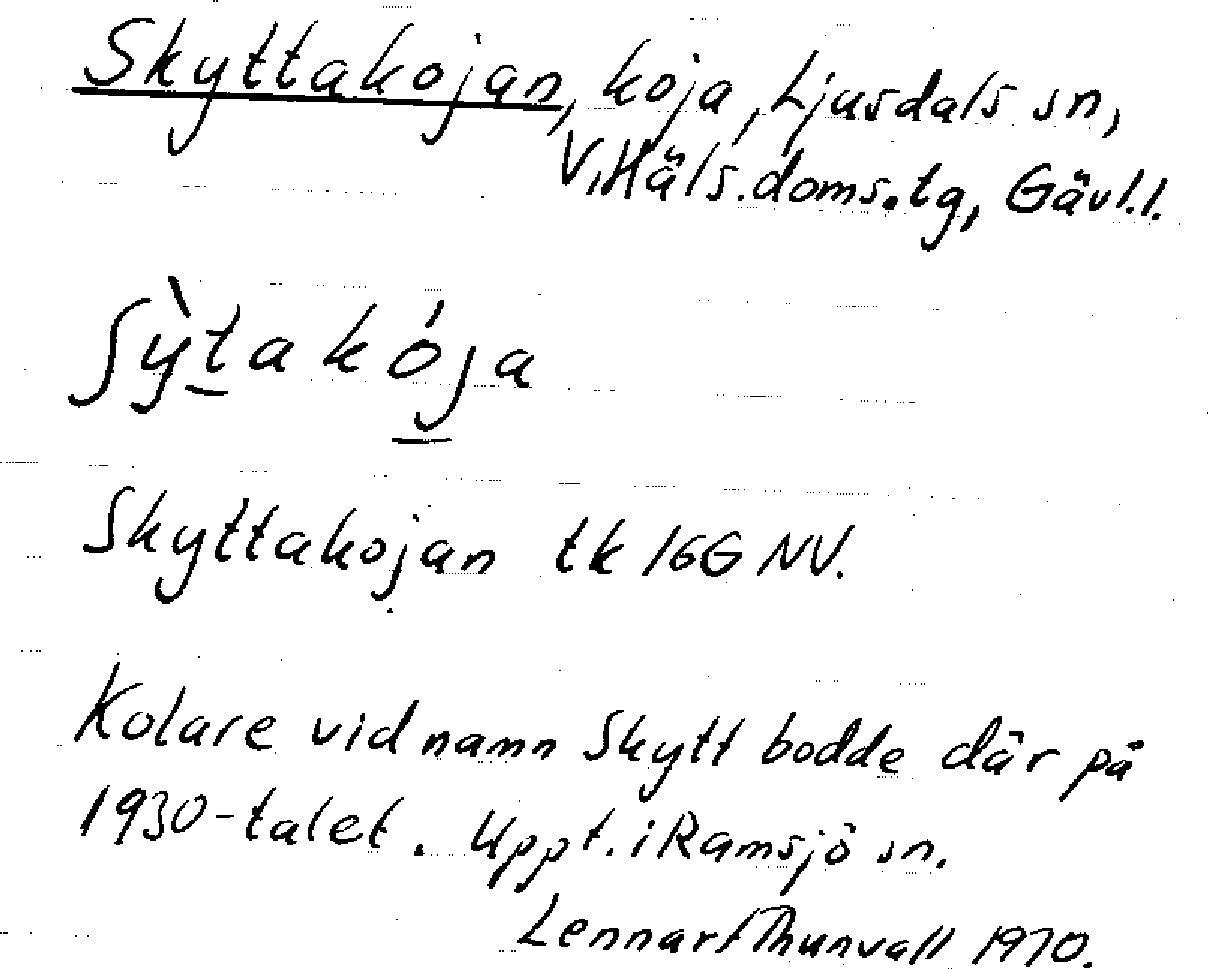 Skyttakojan, koja, Ljusdals sn,
V. Häls. doms. tg, Gävl. l.
ʃỳt̠a kó̠ja
Skyttakojan tk 16G NV.
Kolare vid namn Skytt bodde där på
1930-talet. Uppt. i Ramsjö sn.
Lennart Thunvall 1970.